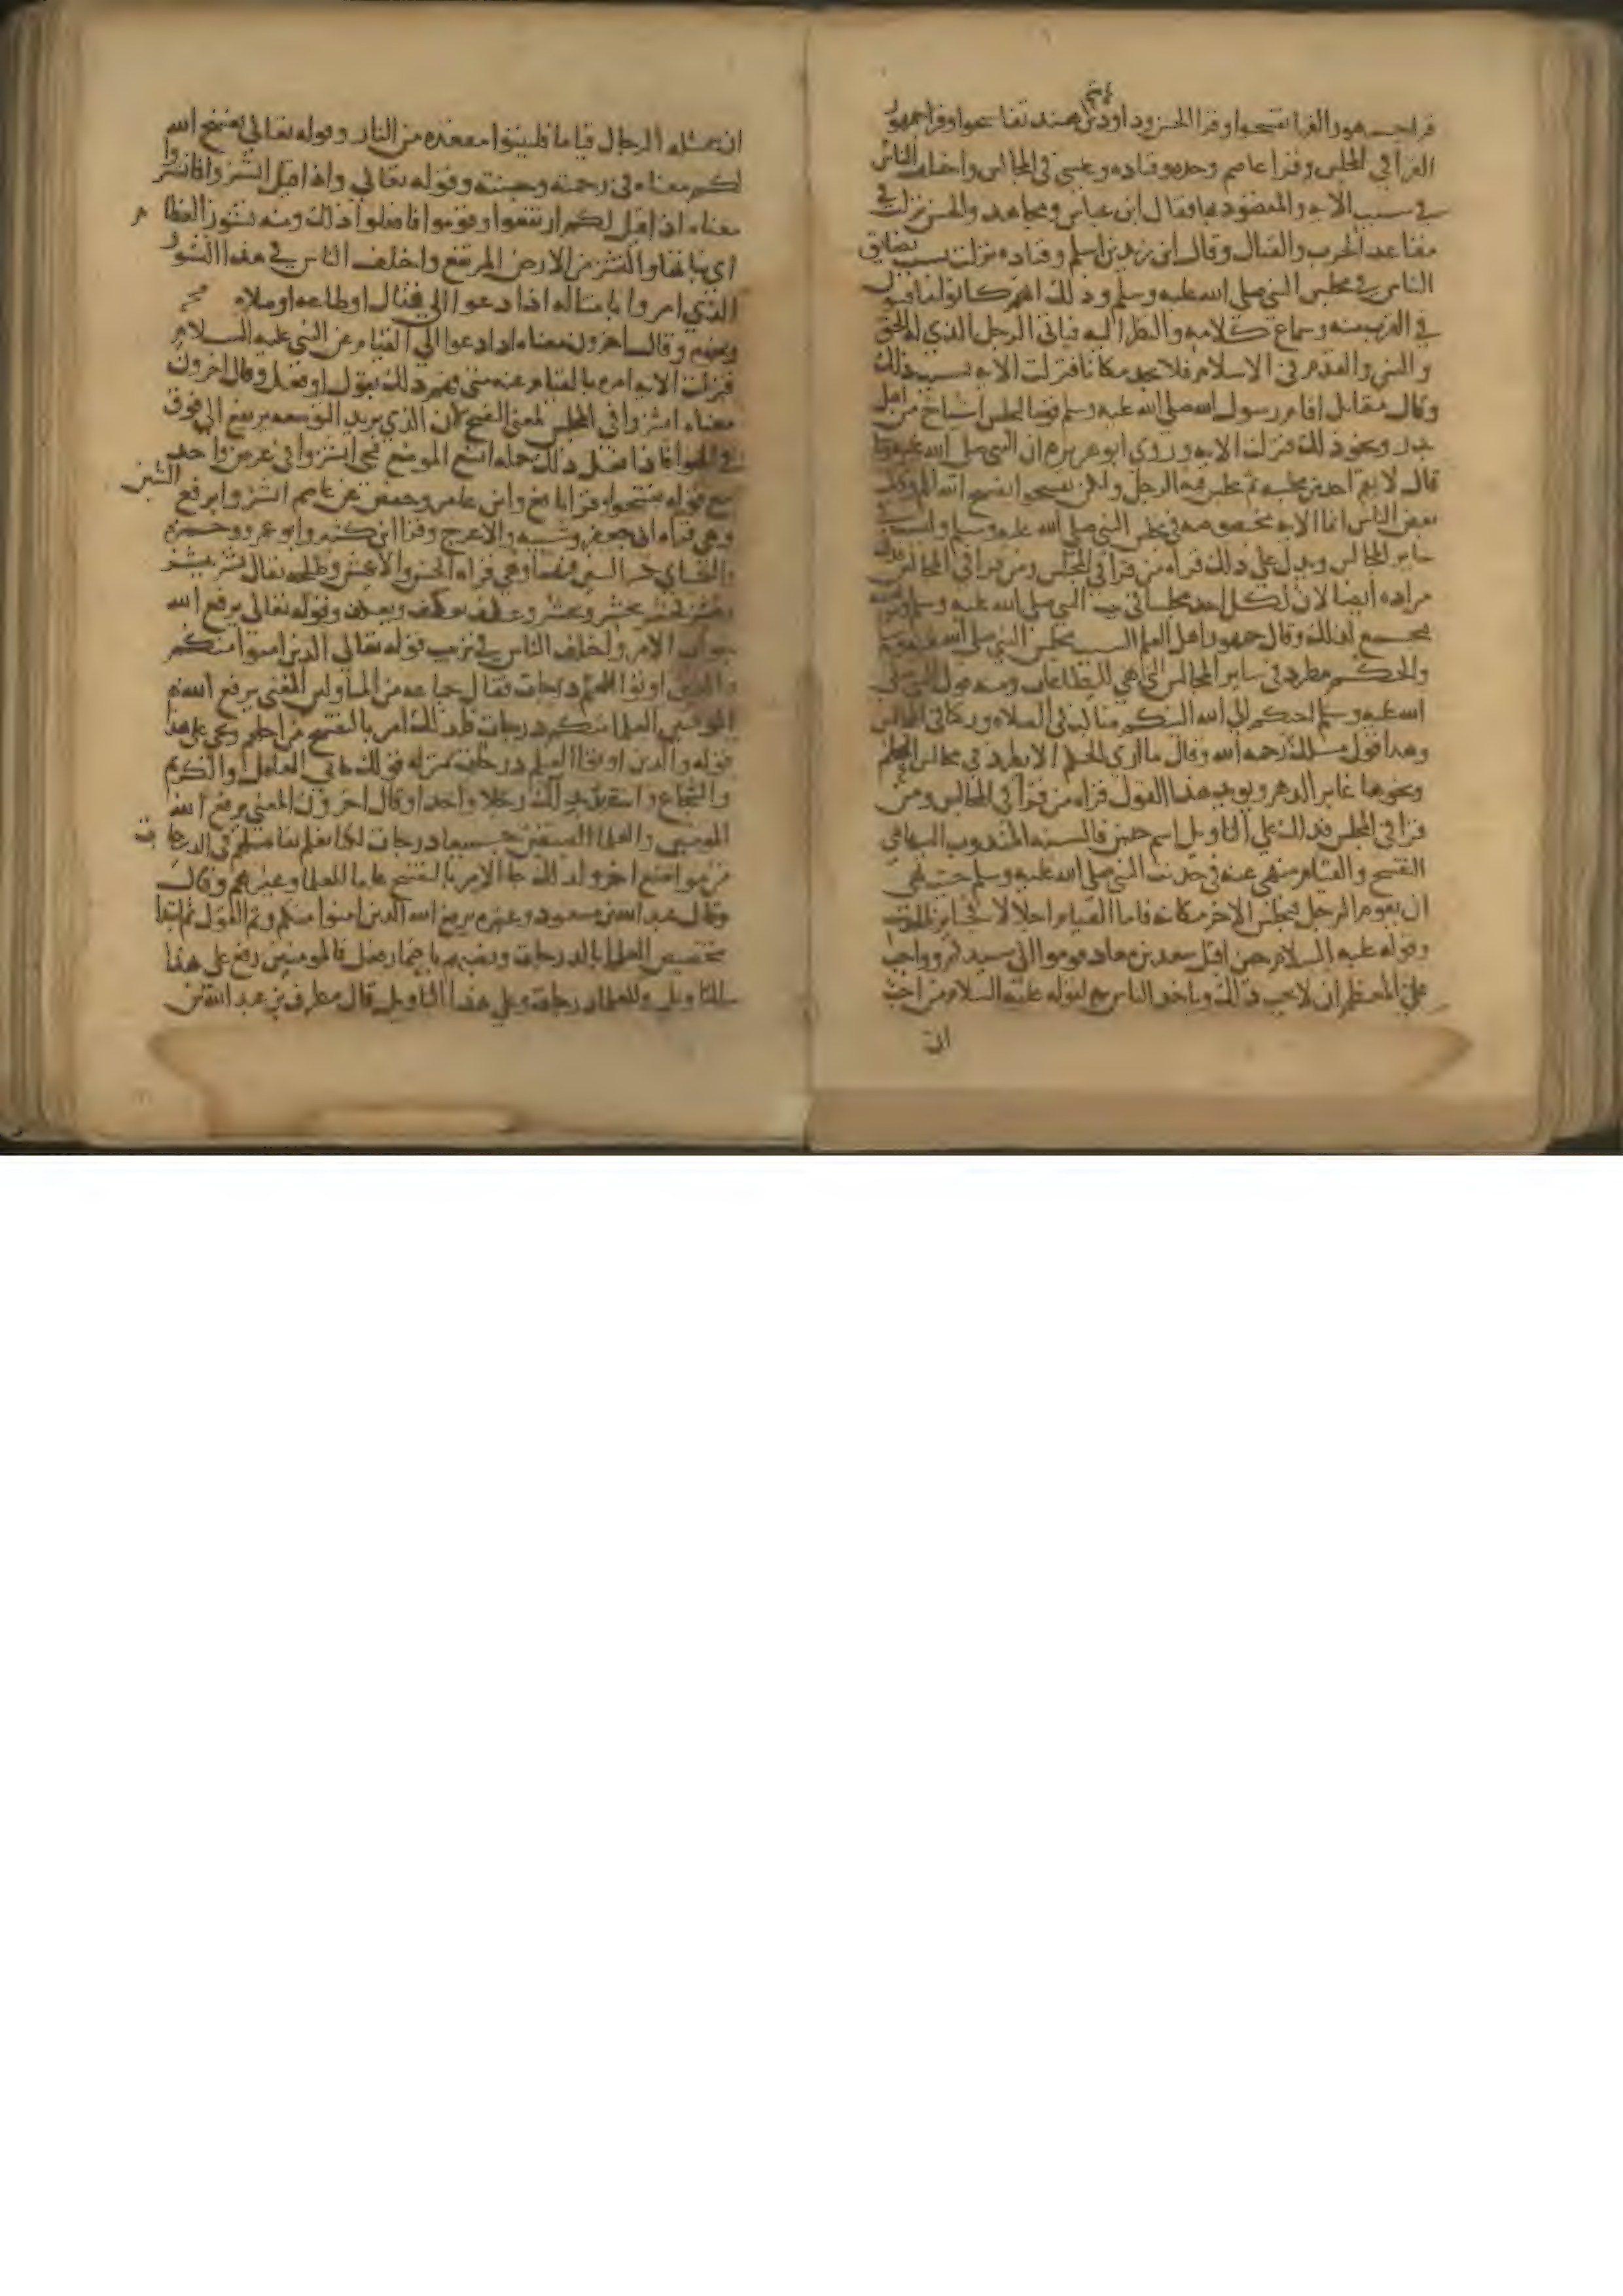 قرا جمهور القرا تفسحوا وقرا الحسن وداود بن ابي هند تفاسحوا وقرا جمهور
القرا في المجلس وقرا عاصم وحده وقتاده وعيسى في المجالس واختلف الناس
في سبب الايه والمقصود بها فقال ابن عباس ومجاهد والحسن نزلت في
مقاعد الحرب والقتال وقال ابن زيد بن اسلم وقتاده نزلت بسبب تضايق
الناس في مجلس النبي صلى الله عليه وسلم وذلك انهم كانوا يتنافسون
في القرب منه وسماع كلامه والنظر اليه فياتي الرجل الذي له الحق
والسن والقدم في الاسلام فلا يجد مكانا فنزلت الايه بسبب ذلك
وقال مقاتل اقام رسول الله صلى الله عليه وسلم قوما ليجلس اشياخ من اهل
بدر ونحو ذلك فنزلت الايه وروى ابو هريره ان النبي صلى الله عليه وسلم
قال لا يقم احد من مجلسه ثم يجلس فيه الرجل ولكن تفسحوا يفسح الله لكم وقال
بعض الناس انما الايه مخصوصه في مجلس النبي صلى الله عليه وسلم و
ساير المجالس ويدل على ذلك قراه من قرا في المجلس ومن قرا في المجالس فذلك
مراده ايضا لان لكل احد مجلسا في بيت النبي صلى الله عليه وسلم
تجمع لذلك وقال جمهور اهل العلم السبب مجلس النبي صلى الله عليه وسلم
والحكم مطرد في ساير المجالس التي هي للطاعات ومنه قول النبي صلى
الله عليه وسلم احبكم الي الله الينكم مناكب في الصلاه وركبا في المجالس
وهذا قول مالك رحمه الله وقال ما ارى الحكم الا يطرد في مجالس العلم
ونحوها غابر الدهر ويويد هذا القول قراه من قرا في المجالس ومن
قرا في المجلس فذلك على التاويل اسم جنس فالسنه المندوب اليها هي
التفسح والقيام منهي عنه في حديث النبي صلى الله عليه وسلم حيث نهى
ان يقوم الرجل فيجلس الاخر مكانه فاما القيام اجلالا فجايز بالحديث
وقوله عليه السلام حين اقبل سعد بن معاذ قوموا الى سيدكم وواجب
على المعظم ان لا يحب ذلك وياخذ الناس به لقوله عليه السلام من احب
ان
ان يتمثل له الرجال قياما فليتبوا مقعده من النار وقوله تعالى يفسح الله
لكم معناه في رحمته وجنته وقوله تعالى واذا قيل انشزوا فانشزوا
معناه اذا قيل لكم ارتفعوا وقوموا فافعلوا ذلك ومنه نشوز العظام
اي نباتها والنشز من الارض المرتفع واختلف الناس في هذا النشوز
الذي امروا بامتثاله اذا دعوا الى قتال او طاعه او صلاه
ونحوه وقال اخرون معناه اذا دعوا الى القيام عن النبي عليه السلام
فنزلت الايه امره بالقيام عنه متى فهم ذلك بقول او فعل وقال اخرون
معناه انشزوا في المجلس لمعنى التفسح لان الذي يريد التوسعه يرتفع الى فوق
في الهوا فاذا فعل ذلك جمله اتسع الموضع فيجي انشزوا في غرض واحد
مع قوله تفسحوا وقرا نافع وابن عامر وحفص عن عاصم انشزوا برفع الشين
وهي قراه ابي جعفر وشيبه والاعرج وقرا ابن كثير وابو عمرو وحمزه
والكساي بكسر الشين فيهما وهي قراه الحسن والاعمش وطلحه يقال نشز ينشز
وينشز كحشر يحشر ويحشر وعكف يعكف ويعكف وقوله تعالى يرفع الله
جواب الامر واختلف الناس في ترتيب قوله تعالى الذين امنوا منكم
والذين اوتوا العلم درجات فقال جماعه من المتاولين المعنى يرفع الله
المومنين العلما منكم درجات فلذلك امر بالتفسح من اجلهم ويجي على هذا
قوله والذين اوتوا العلم درجات بمنزله قولك جاني العاقل والكريم
والشجاع وانت تريد بذلك رجلا واحدا وقال اخرون المعنى يرفع الله
المومنين والعلما الصنفين جميعا درجات لكنا نعلم تفاضلهم في الدرجات
من مواضع اخر ولذلك جا الامر بالتفسح عاما للعلما وغيرهم وقال
وقال عبد الله بن مسعود وغيره يرفع الله الذين امنوا منكم وتم القول ثم ابتدا
تخصيص العلما بالدرجات ونصبهم باضمار فعل فالمومنين رفع على هذا
التاويل وللعلما درجات وعلى هذا التاويل قال مطرف بن عبد الله بن